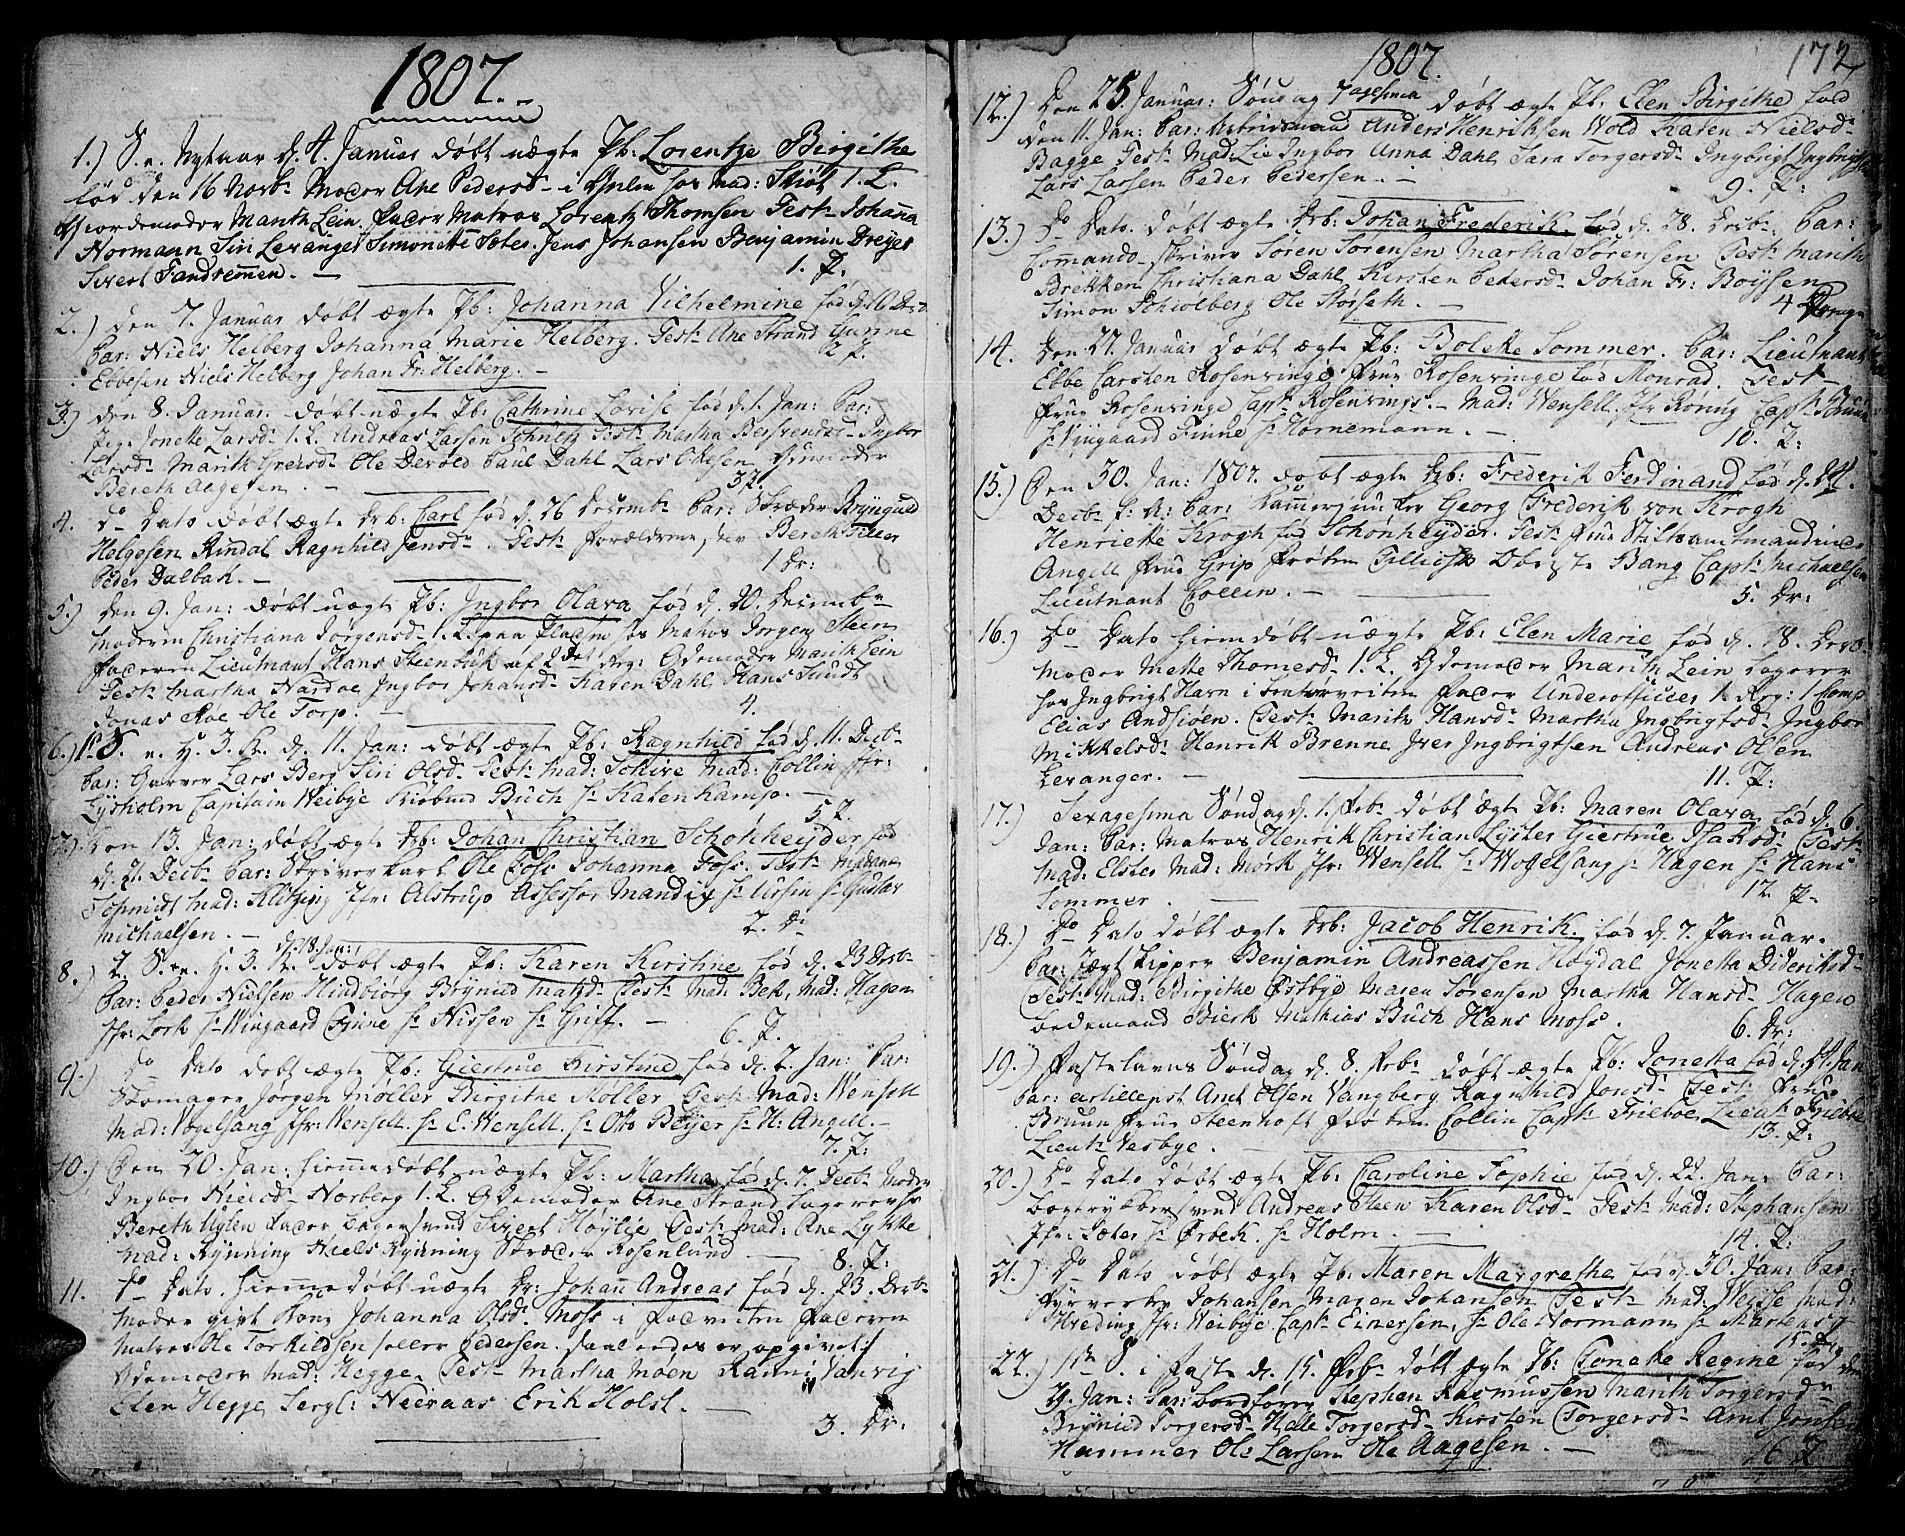 1807.
1.) S. e. Nytaar d. 4. Januar døbt uægte Pb: Lorentze Birgithe
fød den 16 Novbr. Moder Ane Pedersd. i hos Mad: 1. L.
Giordemoder Marith Lein. Fader Matros Lorentz Thomsen Test: Johanna
Normann Siri Levanger Simonette Soter. Jens Johansen Benjamin Dreyer
Sivert Fandremmen. — 1. P.
2.) den 7. Januar døbt ægte Pb: Johanna Vilhelmine fød d. 10
Par: Niels Helberg Johanna Marie Helberg. Test: Ane Strand Gurine
Ebbesen Niels Helberg Johan Fr: Helberg. — 2 P.
3.) den 8. Januar. døbt uægte Pb: Cathrine Lovise fød d. 1. Jan: Par:
Pige Jonette Larsd. 1. L. Andreas Larsen Schultz Test: Martha Ingbor
Larsd. Marith Ole Devold Paul Dahl Lars
Bereth Aagesen. — 3 P.
4. do Dato døbt ægte Drb: Carl fød d. 26 Decemb. Par: Skræder Brynguld
Helgesen Rindal Ragnhild Jensd. Test: Forældrene, Bereth Tiller
Peder Dalbak. — 1 Dr:
5.) den 9. Jan: døbt uægte Pb: Ingbor Olava fød d. 20. Decembr
Moderen Christiana Jørgensd. 1. L. paa hos Matros Jørgen Steen
Faderen Lieutnant Hans Steenbuk af 2det Reg: Gdemoder Marith Lein
Test: Martha Nardoe Ingbor Johansd. Karen Dahl Hans Sundt
Jonas Røe Ole Torp. — 4.
6.) 1te S. e. H. 3. K. d. 11. Jan: døbt ægte Pb: Ragnhild fød d. 11. Decbr
Par: Garver Lars Berg Siri Olsd. Test: Mad: Schive Mad: Collin Jfr:
Lysholm Capitain Weibye Kiøbmd Buch Hr Katenkamp. — 5 P.
7.) Den 13. Jan: døbt ægte Drb: Johan Christian Schønheyder fød
d. 21. Decb. Par: Skriver karl Ole Foss Johanna Foss. Test: Madam
Schmidt Mad: Klitzing Jfr: Alstrup Assessor Mandix Hr Ursin Hr Gustav
Michaelsen. — 2. D.
8.) 2. S. e. H. 3. K. d. 18. Jan: døbt ægte Pb: Karen Kirstine fød d. 23 Decb.
Par: Peder Nielsen Hindbiørg Brynild Test: Mad: Bek, Mad: Hagen
Jfr: Lork Hr Wingaard Finne Hr Nissen Hr Griff. — 6. P.
9.) do Dato døbt ægte Pb: Giertrue Kirstine fød d. 2. Jan: Par:
Skomager Jørgen Møller Birgithe Møller Test: Mad: Wensell
Mad: Vogelsang Jfr: Wensell. Hr E. Wensell. Hr Otto Beyer Hr H: Angell. — 7. P.
10.) Den 20. Jan: hiemmedøbt uægte Pb: Martha fød d. 7. Decb. Moder
Ingbor Nielsd. Norberg 1. L. Gdemoder Ane Strand
Bereth Uglen Fader Sivert Høylie Test: Mad: Ane Lykke
Mad: Rynning Niels Rynning Skræder Rosenlund. — 8. P.
11. do Dato. hiemmedøbt uægte Dr: Johan Andreas fød d. 23. Decb.
Moder gift Kone Johanna Olsd. Moss i Faderen
Matros Ole Torkildsen eller Pedersen. saaledes er opgivet
Gdemoder Mad: Hegge. Test: Martha Moen Ranni Vanvig
Elen Hegge Sergt: Nieraas Erik Holst. — 3. Dr:
1807. 172
12.) Den 25. Januar: Søndag 7agesima døbt ægte Pb: Elen Birgithe fød
den 11. Jan: Par: Arbeidsmand Anders Henriksen Wold Karen Nielsd.
Bagge Test: Mad: Lie Ingbor Anna Dahl Sara Torgersd. Ingbrigt Ingbrigts.
Lars Larsen Peder Pedersen. — 9. P:
13.) do Dato døbt ægte Drb: Johan Frederik fød d. 28. Decb. Par:
Comando-skriver Søren Sørensen Martha Sørensen Test: Marith
Brekken Christiana Dahl Kirsten Pedersd. Johan Fr: Boysen
Simon Schiolberg Ole Storseth. — 4 Drenge
14. Den 27. Januar døbt ægte Pb: Bolette Sommer. Par: Lieutnant
Ebbe Carsten Rosenvinge Frue Rosenvinge fød Monrad. Test:
Frue Rosenvinge Capt: Rosenvinge. — Mad: Wensell. Jfr Rønny Capt:
Hr Vingaard Finne Hr Hornemann. — 10. P:
15.) Den 30. Jan: 1807. døbt ægte Drb: Frederik Ferdinand fød d. 24.
Decb. f: A: Par: Kammerjunker Georg Frederik von Krogh
Henriette Krogh fød Schønheyder. Test: Frue Stiftsamtmandinde
Angell Frue Grip Frøken Tillisch Oberste Bang Capt: Michaelsen
Lieutnant Collin. — 5. Dr:
16.) Do Dato hiemdøbt uægte Pb: Elen Marie fød d. 18. Decb.
Moder Mette Thomesd. 1. L. Gdemoder Marith Lein
hos Ingbrigt Havn i Fader Underofficer 1. Reg: 1 Comp
Elias Andsiøen. Test: Marith Hansd. Martha Ingbrigtsd. Ingbor
Mikkelsd. Henrik Brenne Iver Ingbrigtsen Andreas Olsen
Levanger. — 11. P:
17.) Sexagesima Søndag d. 1. Feb. døbt ægte Pb: Maren Olava fød d. 6.
Jan: Par: Matros Henrik Christian Lyster Giertrue Isaksd. Test:
Mad: Elster Mad: Mørk Jfr: Wensell Hr Wogelsang Hr Hagen Hr Hans
Sommer. — 12. P.
18.) Do Dato døbt ægte Drb: Jacob Henrik. fød d. 7. Januar.
Par: Jægt skipper Benjamin Andreassen Høydal Jonetta Dideriksd.
Test: Mad: Birgithe Østbye Maren Sørensen Martha Hansd. Hagen
Bedemand Bierk Mathias Buch Hans Moss. 6. Dr:
19.) Fastelavns Søndag d. 8. Feb. døbt ægte Pb: Jonetta fød d. 21. Jan
Par: Artillerist Arnt Olsen Vangberg Ragnhild Jonsd. Test: Frue
Bruun Frue Steenhoft Frøken Collin Capt: Trieboe, Lieut: Trieboe
Lieut: Vesbye. — 13. P:
20.) Do Dato døbt ægte Pb: Caroline Sophie fød d. 22. Jan: Par:
Bogtrykkersvend Andreas Steen Karen Olsd. Test: Mad: Stephansen
Jfr: Soter Hr Ørbek. Hr Holm. — 14. P:
21.) Do Dato døbt ægte Pb: Maren Margrethe fød d. 30. Jan: Par:
Fyrverker Johansen Maren Johansen Test: Mad: Weisse Mad:
Hveding Jfr: Weibye Capt: Einersen, Hr Ole Normann Hr Martens
15. P.
22.) 1ste S. i Faste d. 15. Feb. døbt ægte Pb: Tonette Regine fød den
29. Jan: Par: Bordfører Stephen Rasmussen Marith Torgersd.
Brynild Torgersd. Helle Torgersd. Kirsten Torgersd. Arnt Jonsen
Hammer Ole Larsen Ole Aagesen. — 16 P.